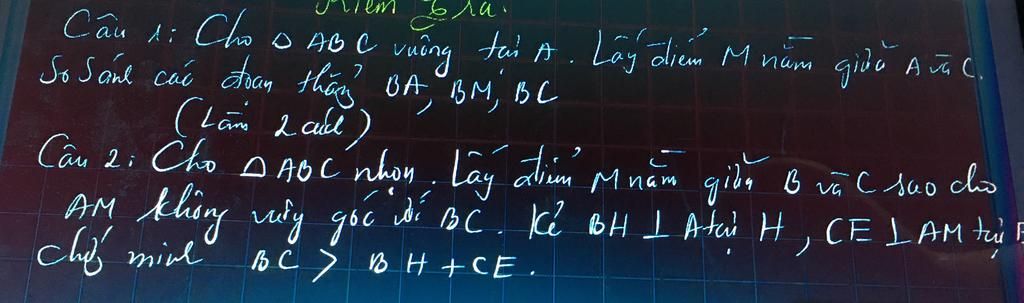 Kiểm tra.
Câu 1: Cho Δ ABC vuông tại A. Lấy điểm M nằm giữa A và C.
So sánh các đoạn thẳng BA, BM, BC
(Làm 2 cách)
Câu 2: Cho Δ ABC nhọn. Lấy điểm M nằm giữa B và C sao cho
AM không vuông góc với BC. Kẻ BH ⊥ A tại H, CE ⊥ AM tại E
Chứng minh BC > BH + CE.